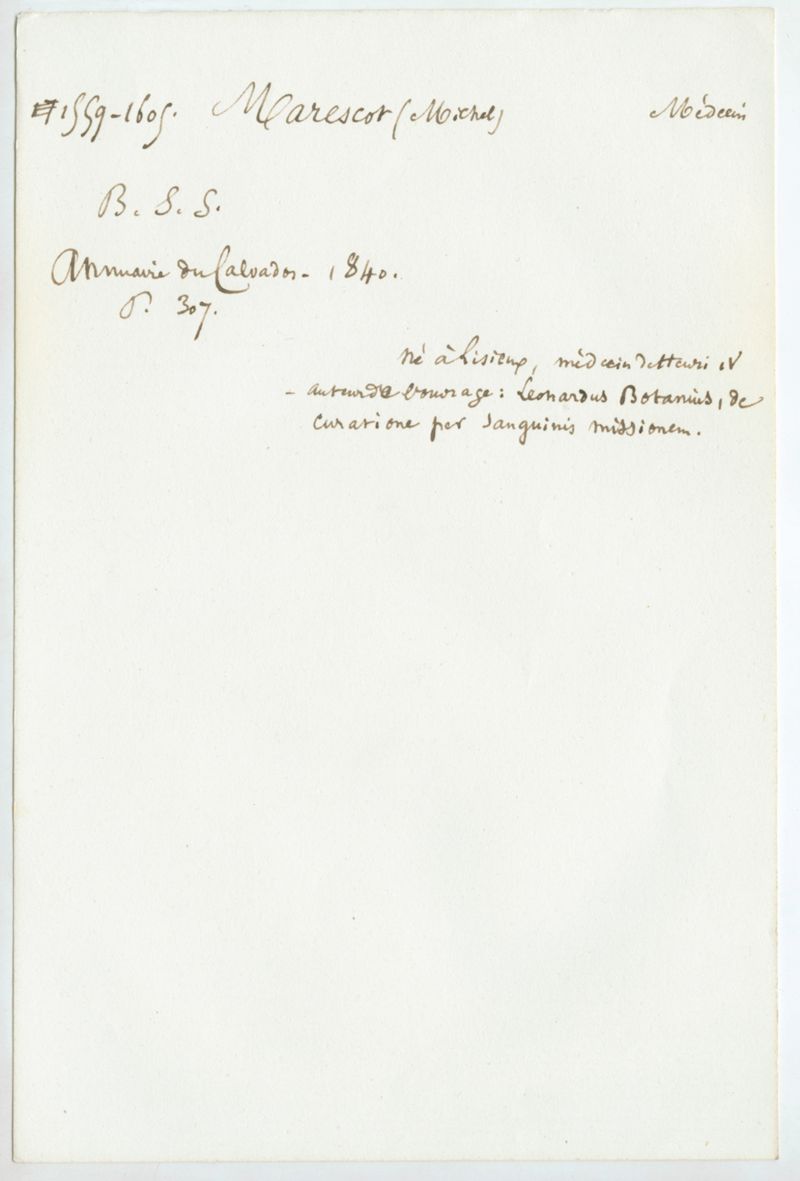 1559-1605. Marescot (Michel) Médecin
B. S. S.
Annuaire du Calvados - 1840.
P. 307.
Né à Lisieux, médecin de Henri IV
- auteur de l'ouvrage : Leonardus Botanius, de
curatione per sanguinis missionem.